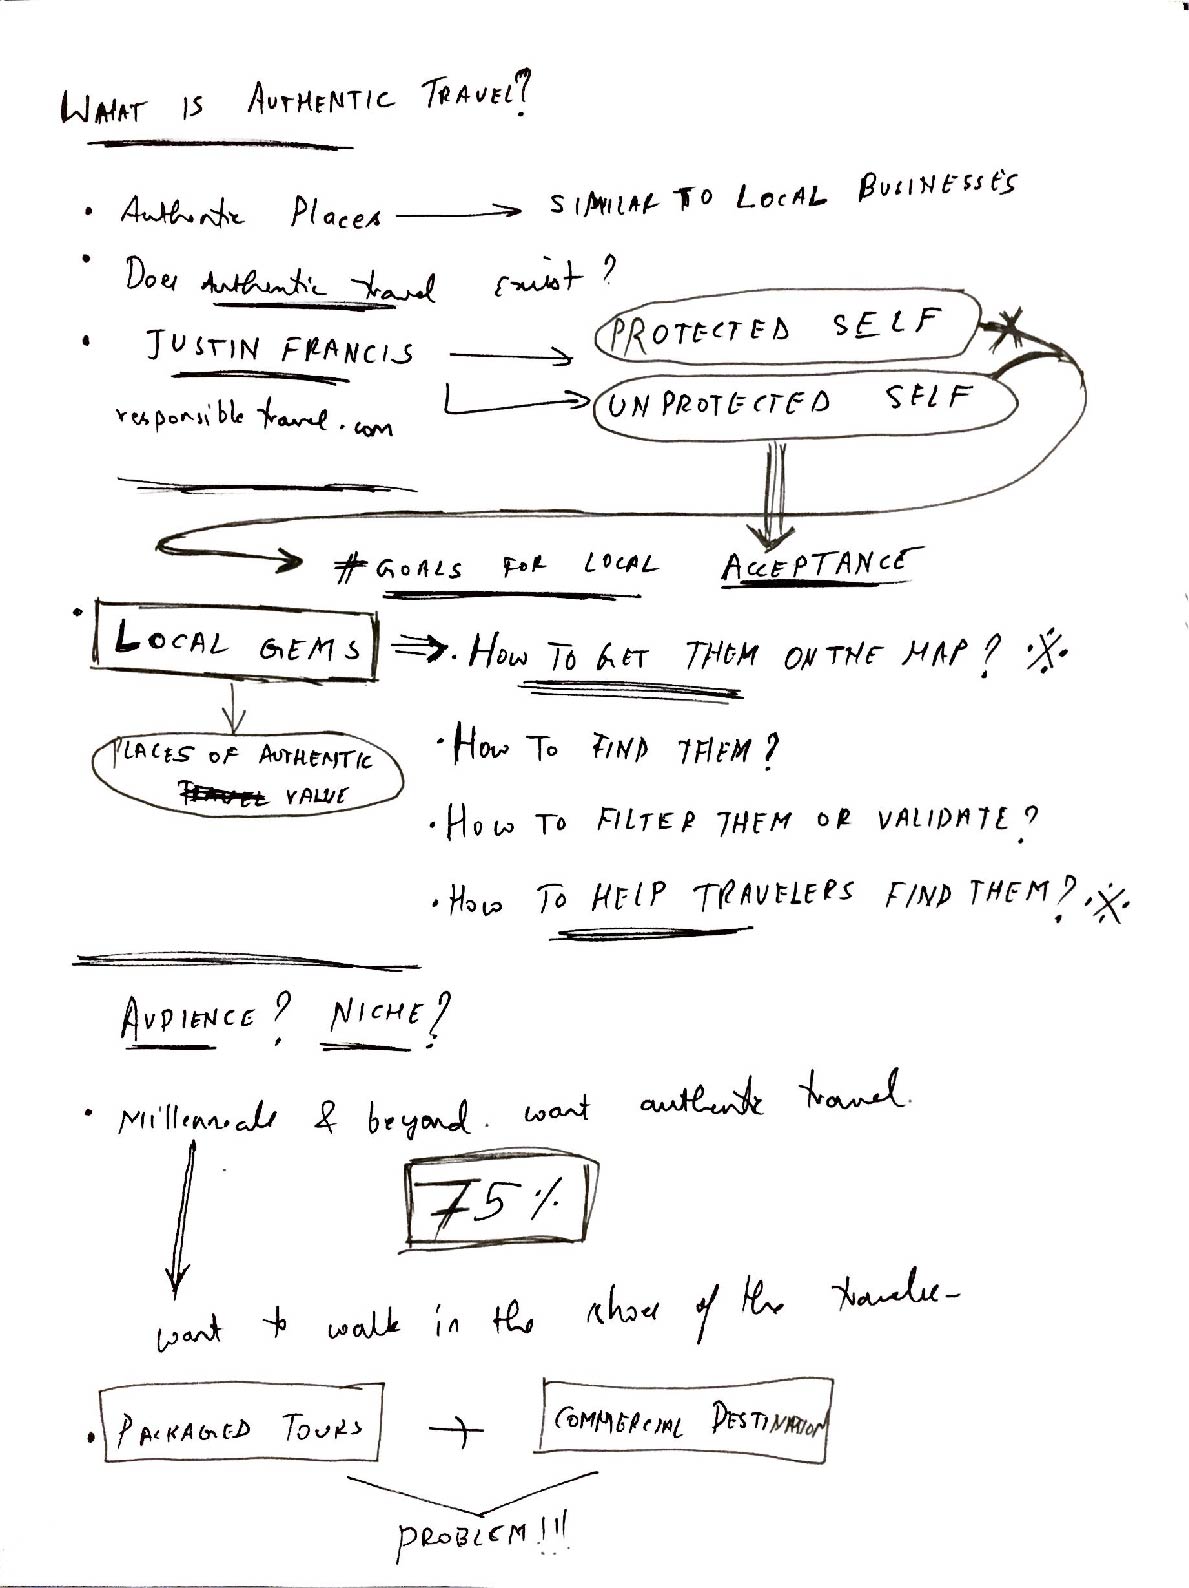 WHAT IS AUTHENTIC TRAVEL?
• Authentic Places → SIMILAR TO LOCAL BUSINESSES
• Does authentic travel exist?
PROTECTED SELF
• JUSTIN FRANCIS
UNPROTECTED SELF
responsible travel.com
# GOALS FOR LOCAL ACCEPTANCE
• LOCAL GEMS ⇒ • HOW TO GET THEM ON THE MAP? ※
PLACES OF AUTHENTIC
TRAVEL VALUE
• HOW TO FIND THEM?
• HOW TO FILTER THEM OR VALIDATE?
• HOW TO HELP TRAVELERS FIND THEM? ※
AUDIENCE? NICHE?
• Millennials & beyond. want authentic travel.
75%
want to walk in the shoes of the traveler
• PACKAGED TOURS + COMMERCIAL DESTINATION
PROBLEM!!!